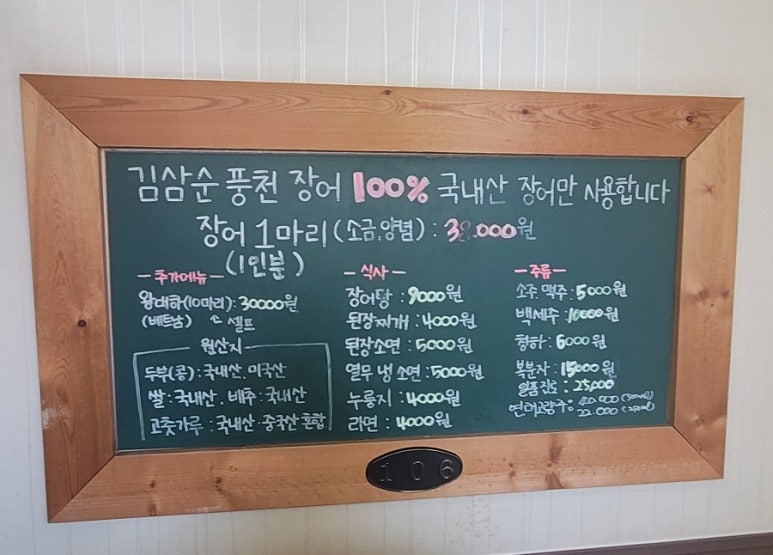 김삼순 풍천 장어 100% 국내산 장어만 사용합니다
장어 1마리 (소금.양념) : 38.000원
(1인분)
- 추가메뉴 -
왕대하(10마리): 30000원
(베트남) 셀프
원산지
두부(콩) : 국내산. 미국산
쌀 : 국내산. 배추 : 국내산
고춧가루 : 국내산. 중국산 혼합
- 식사 -
장어탕 : 9000원
된장찌개 : 4000원
된장소면 : 5000원
열무 냉 소면 : 5000원
누룽지 : 4000원
라면 : 4000원
- 주류 -
소주. 맥주 : 5000원
백세주 : 10000원
청하 : 6000원
복분자 : 15000원
일품진로 : 25,000
22.000
106